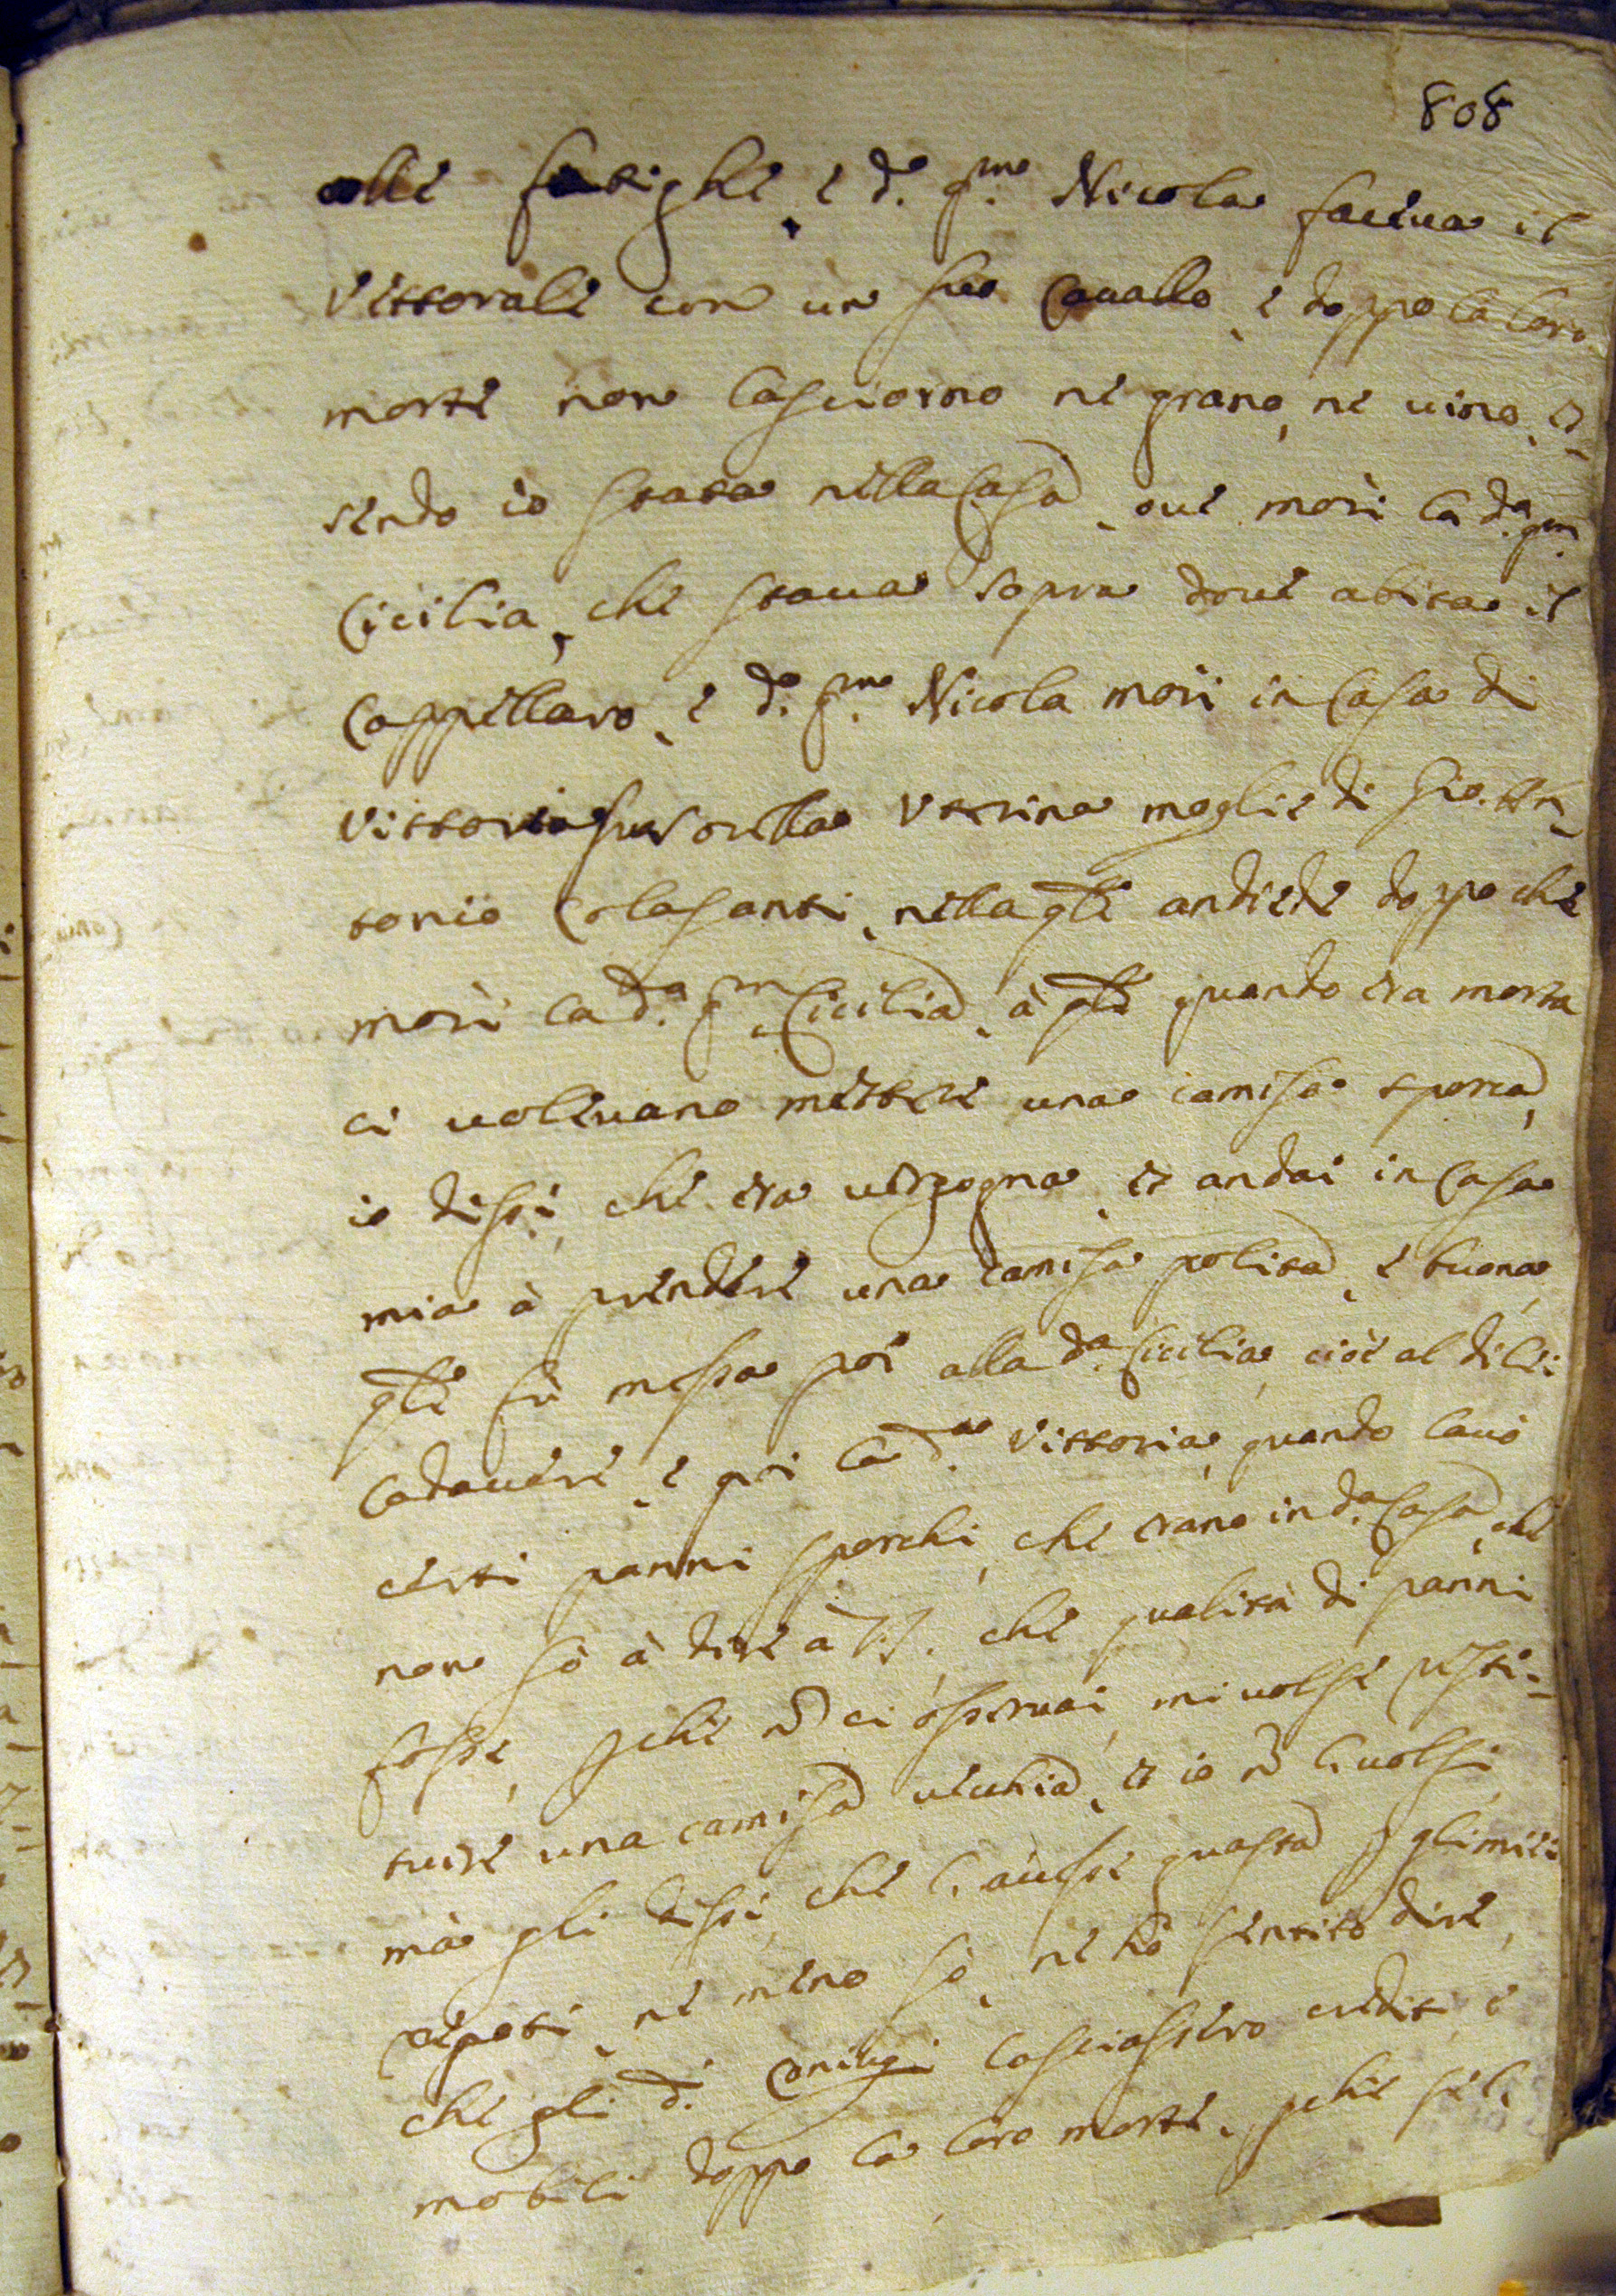 808
alle fatighe, e d.º qm. Nicola faceva il
Vitturale con un suo Cavallo, e doppo la loro
morte non lasciorno ne grano, ne vino, es-
sendo io stata nella Casa, ove morì la d.ª qm.
Cicilia, che stava sopra dove abita il
Cappellaro, e d.º qm. Nicola morì in Casa di
Vittoria sua sorella Uterina moglie di Gio: An-
tonio Colasanti, nella qle andiede doppo che
morì la d.ª qm. Cicilia, à qle quando era morta
ci volevano mettere una camisa sporca,
io dissi, che era vergogna, et andai in Casa
mia à prendere una camisa polita, e buona,
qle fù messa poi alla d.ª Cicilia, cioè al di lei
Cadavere, e poi la d.ª Vittoria, quando lavò
certi panni sporchi, che erano in d.ª Casa, che
non sò à dire à VS. che qualità di panni
fosse, pche nō ci osservai, mi volse resti-
tuire una camisa vecchia, et io nō la volsi,
mà gli dissi, che l'avesse guasta p gli miei
nepoti, ne meno sò, ne hò sentito dire,
che gli d.i Coniugi lasciassero crediti, e
mobili doppo la loro morte, pche se l.